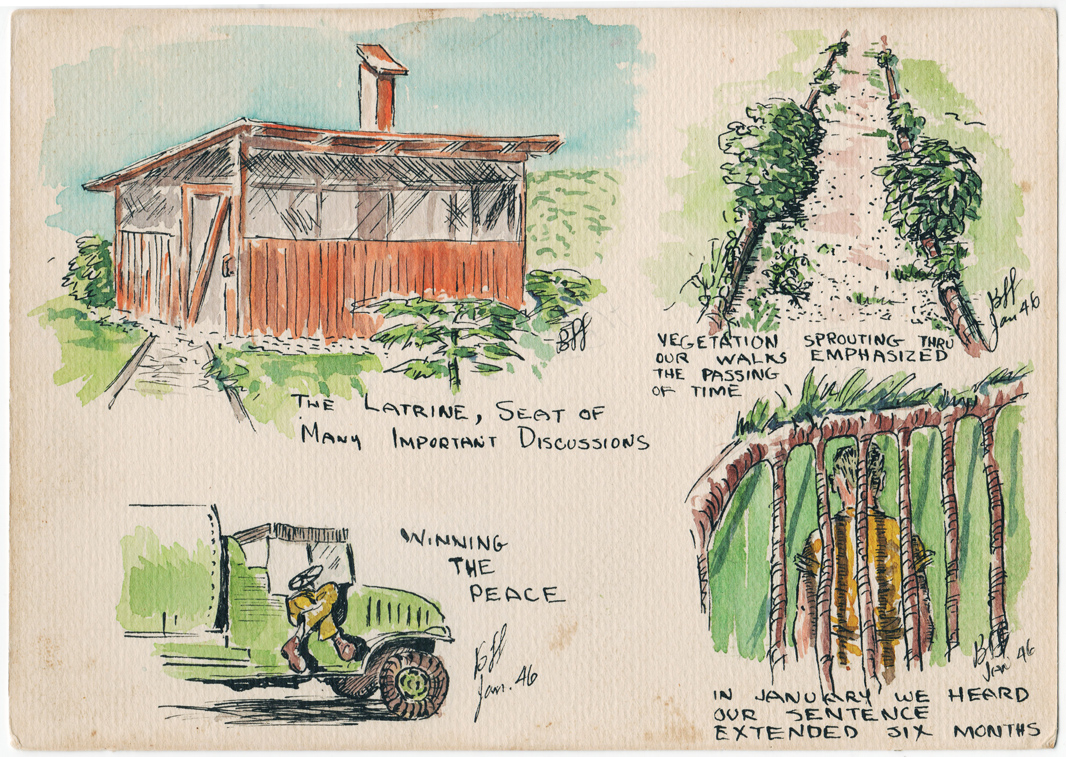 The Latrine, Seat of
Many Important Discussions
Bff
VEGETATION SPROUTING THRU
OUR WALKS EMPHASIZED
THE PASSING
OF TIME
Bff
Jan 46
WINNING
THE
PEACE
Bff
Jan. 46
IN JANUARY WE HEARD
OUR SENTENCE
EXTENDED SIX MONTHS
Bff
JAN 46